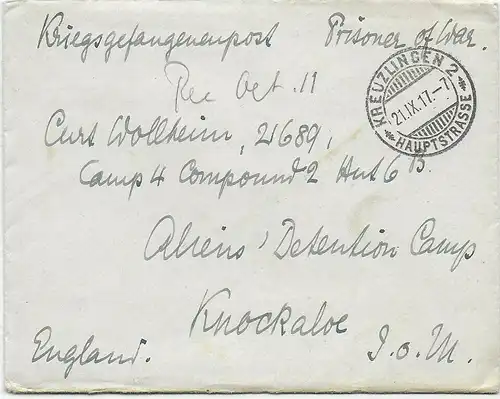 Kriegsgefangenenpost Prisoner of War.
Rec Oct. 11
KREUZLINGEN 2
21.IX.17.-7
HAUPTSTRASSE
Curt Wollheim, 21689,
Camp 4 Compound 2 Hut 6 B.
Aliens' Detention Camp
Knockaloe
England. I. o. M.